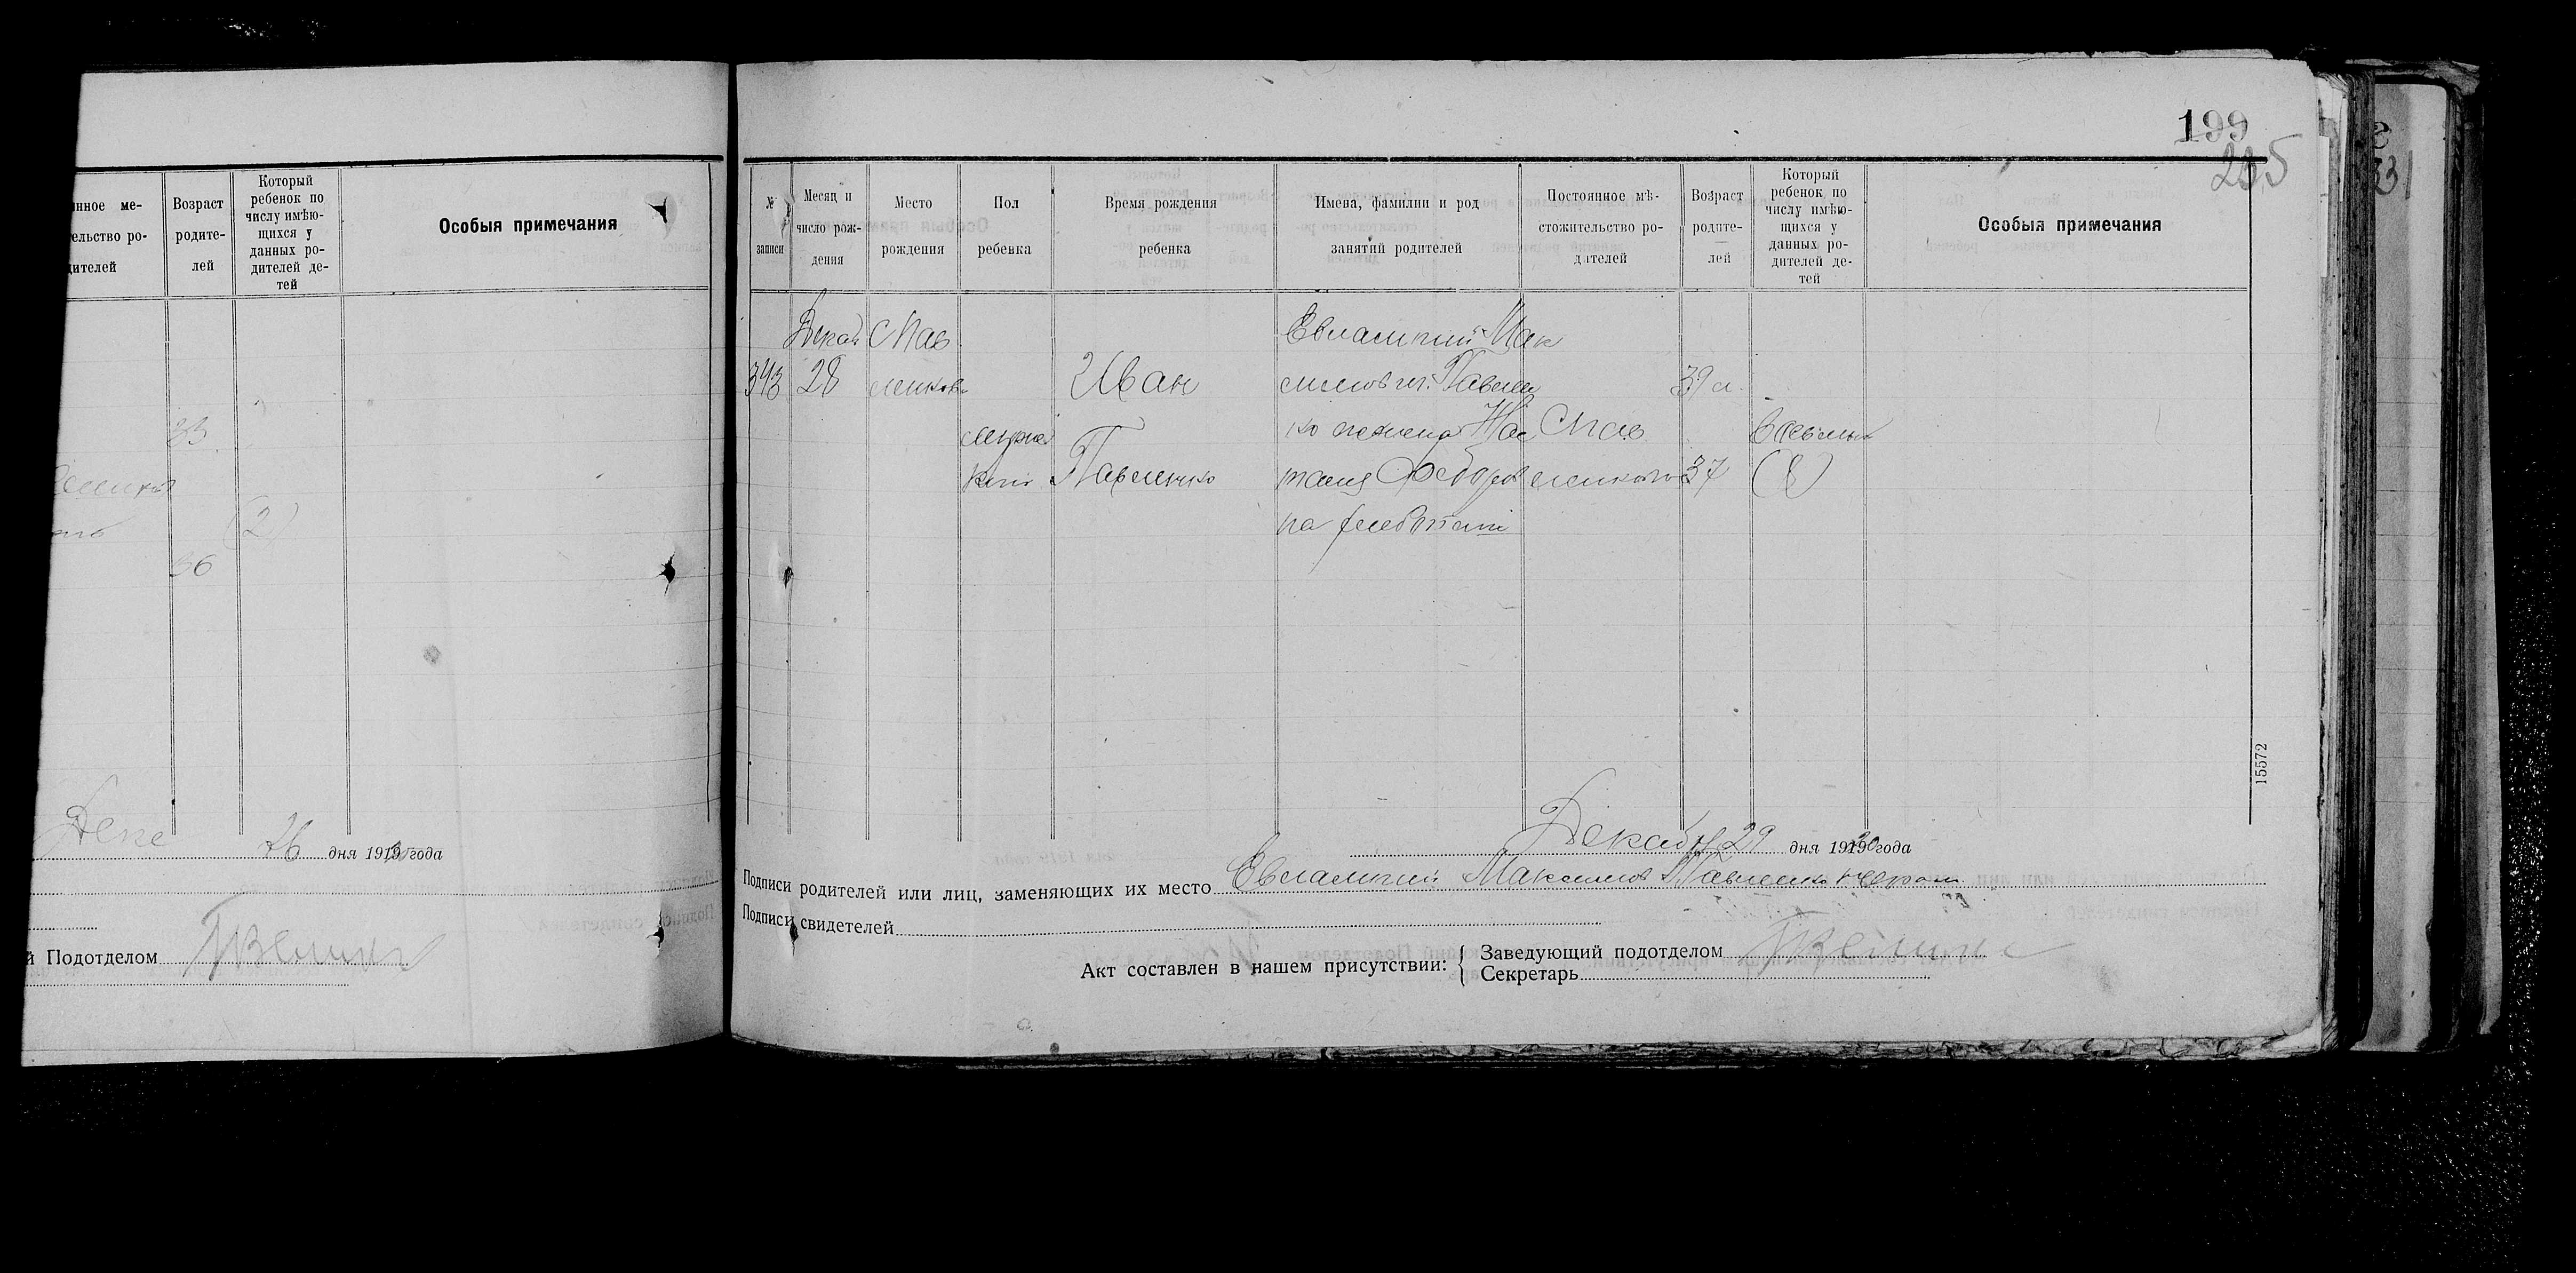 199
235
нное ме-
ельство ро-
дителей
Возраст
родите-
лей
Который
ребенок по
числу имѣю-
щихся у
данных ро-
дителей де-
тей
Особыя примечания
33
(2)
36
Дека
26 дня 1919 года
й Подотделом
№
записи
Месяц и
число рож-
дения
Место
рождения
Пол
ребенка
Время рождения
ребенка
Имена, фамилии и род
занятий родителей
Постоянное мѣ-
стожительство ро-
дителей
Возраст
родите-
лей
Который
ребенок по
числу имѣю-
щихся у
данных ро-
дителей де-
тей
Особыя примечания
343
Декаб
28
с Пав
ленков
мужс
кой
Иван
Павленко
Евлампий Мак
симов Павлен
ко жена Нас
тасия Федоров
на
с Пав
ленково
39 л.
37
восьмой
(8)
15572
Декабря 29 дня 1920 года
Подписи родителей или лиц, заменяющих их место Евлампий Максимов Павленко
Подписи свидетелей
Акт составлен в нашем присутствии:
Заведующий подотделом
Секретарь